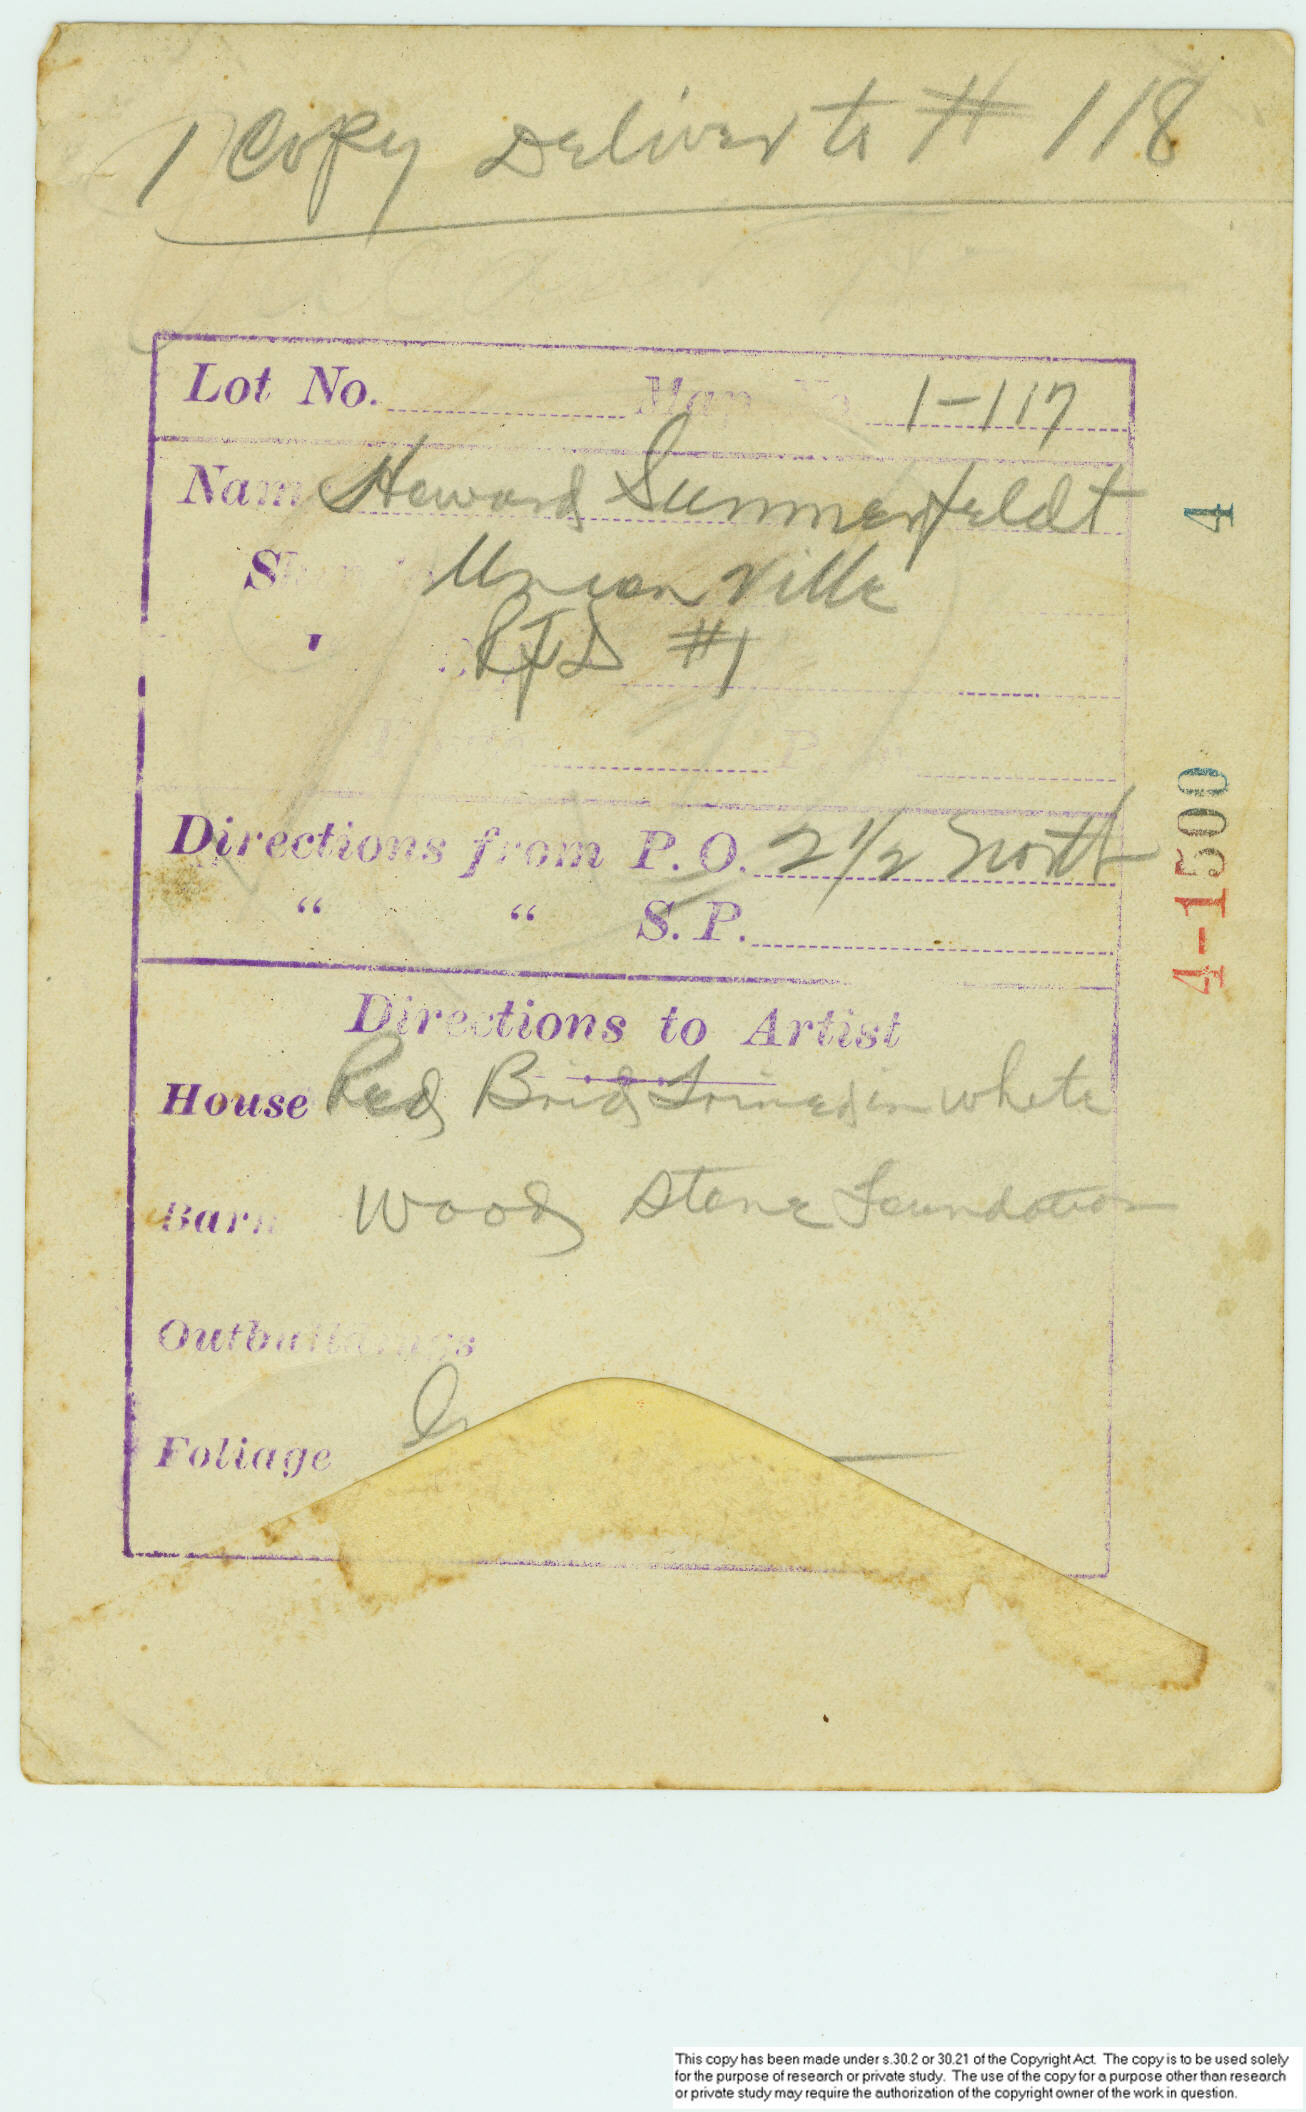 1 Copy Deliver to # 118
Lot No. Map No. 1-117
Name Howard Summerfeldt
Unionville
RFD #1
Directions from P.O. 2 1/2 North
" " S.P.
Directions to Artist
House Red Brick Trimed in white
Barn Wood Stone Foundation
Outbuildings
Foliage
4
4-1500
This copy has been made under s.30.2 or 30.21 of the Copyright Act. The copy is to be used solely
for the purpose of research or private study. The use of the copy for a purpose other than research
or private study may require the authorization of the copyright owner of the work in question.